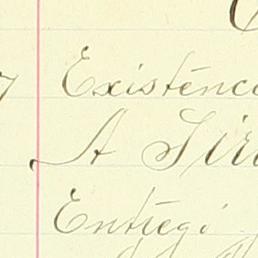 Existênc
A Tir
Entregi